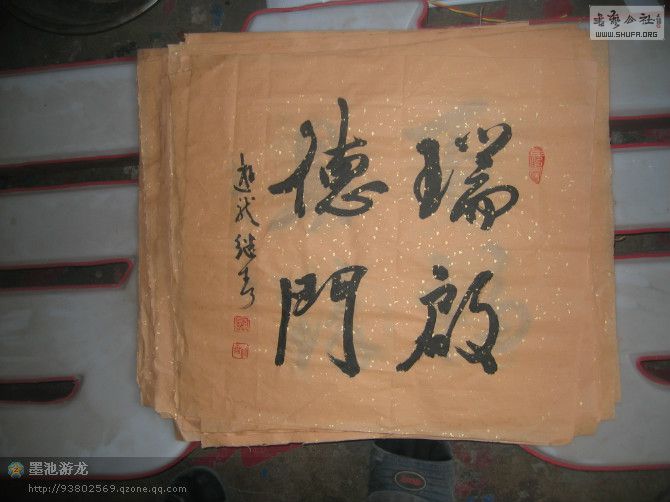 瑞啟
德門
游龍继寿
書藝公社
WWW.SHUFA.ORG
墨池游龙
http://93802569.qzone.qq.com